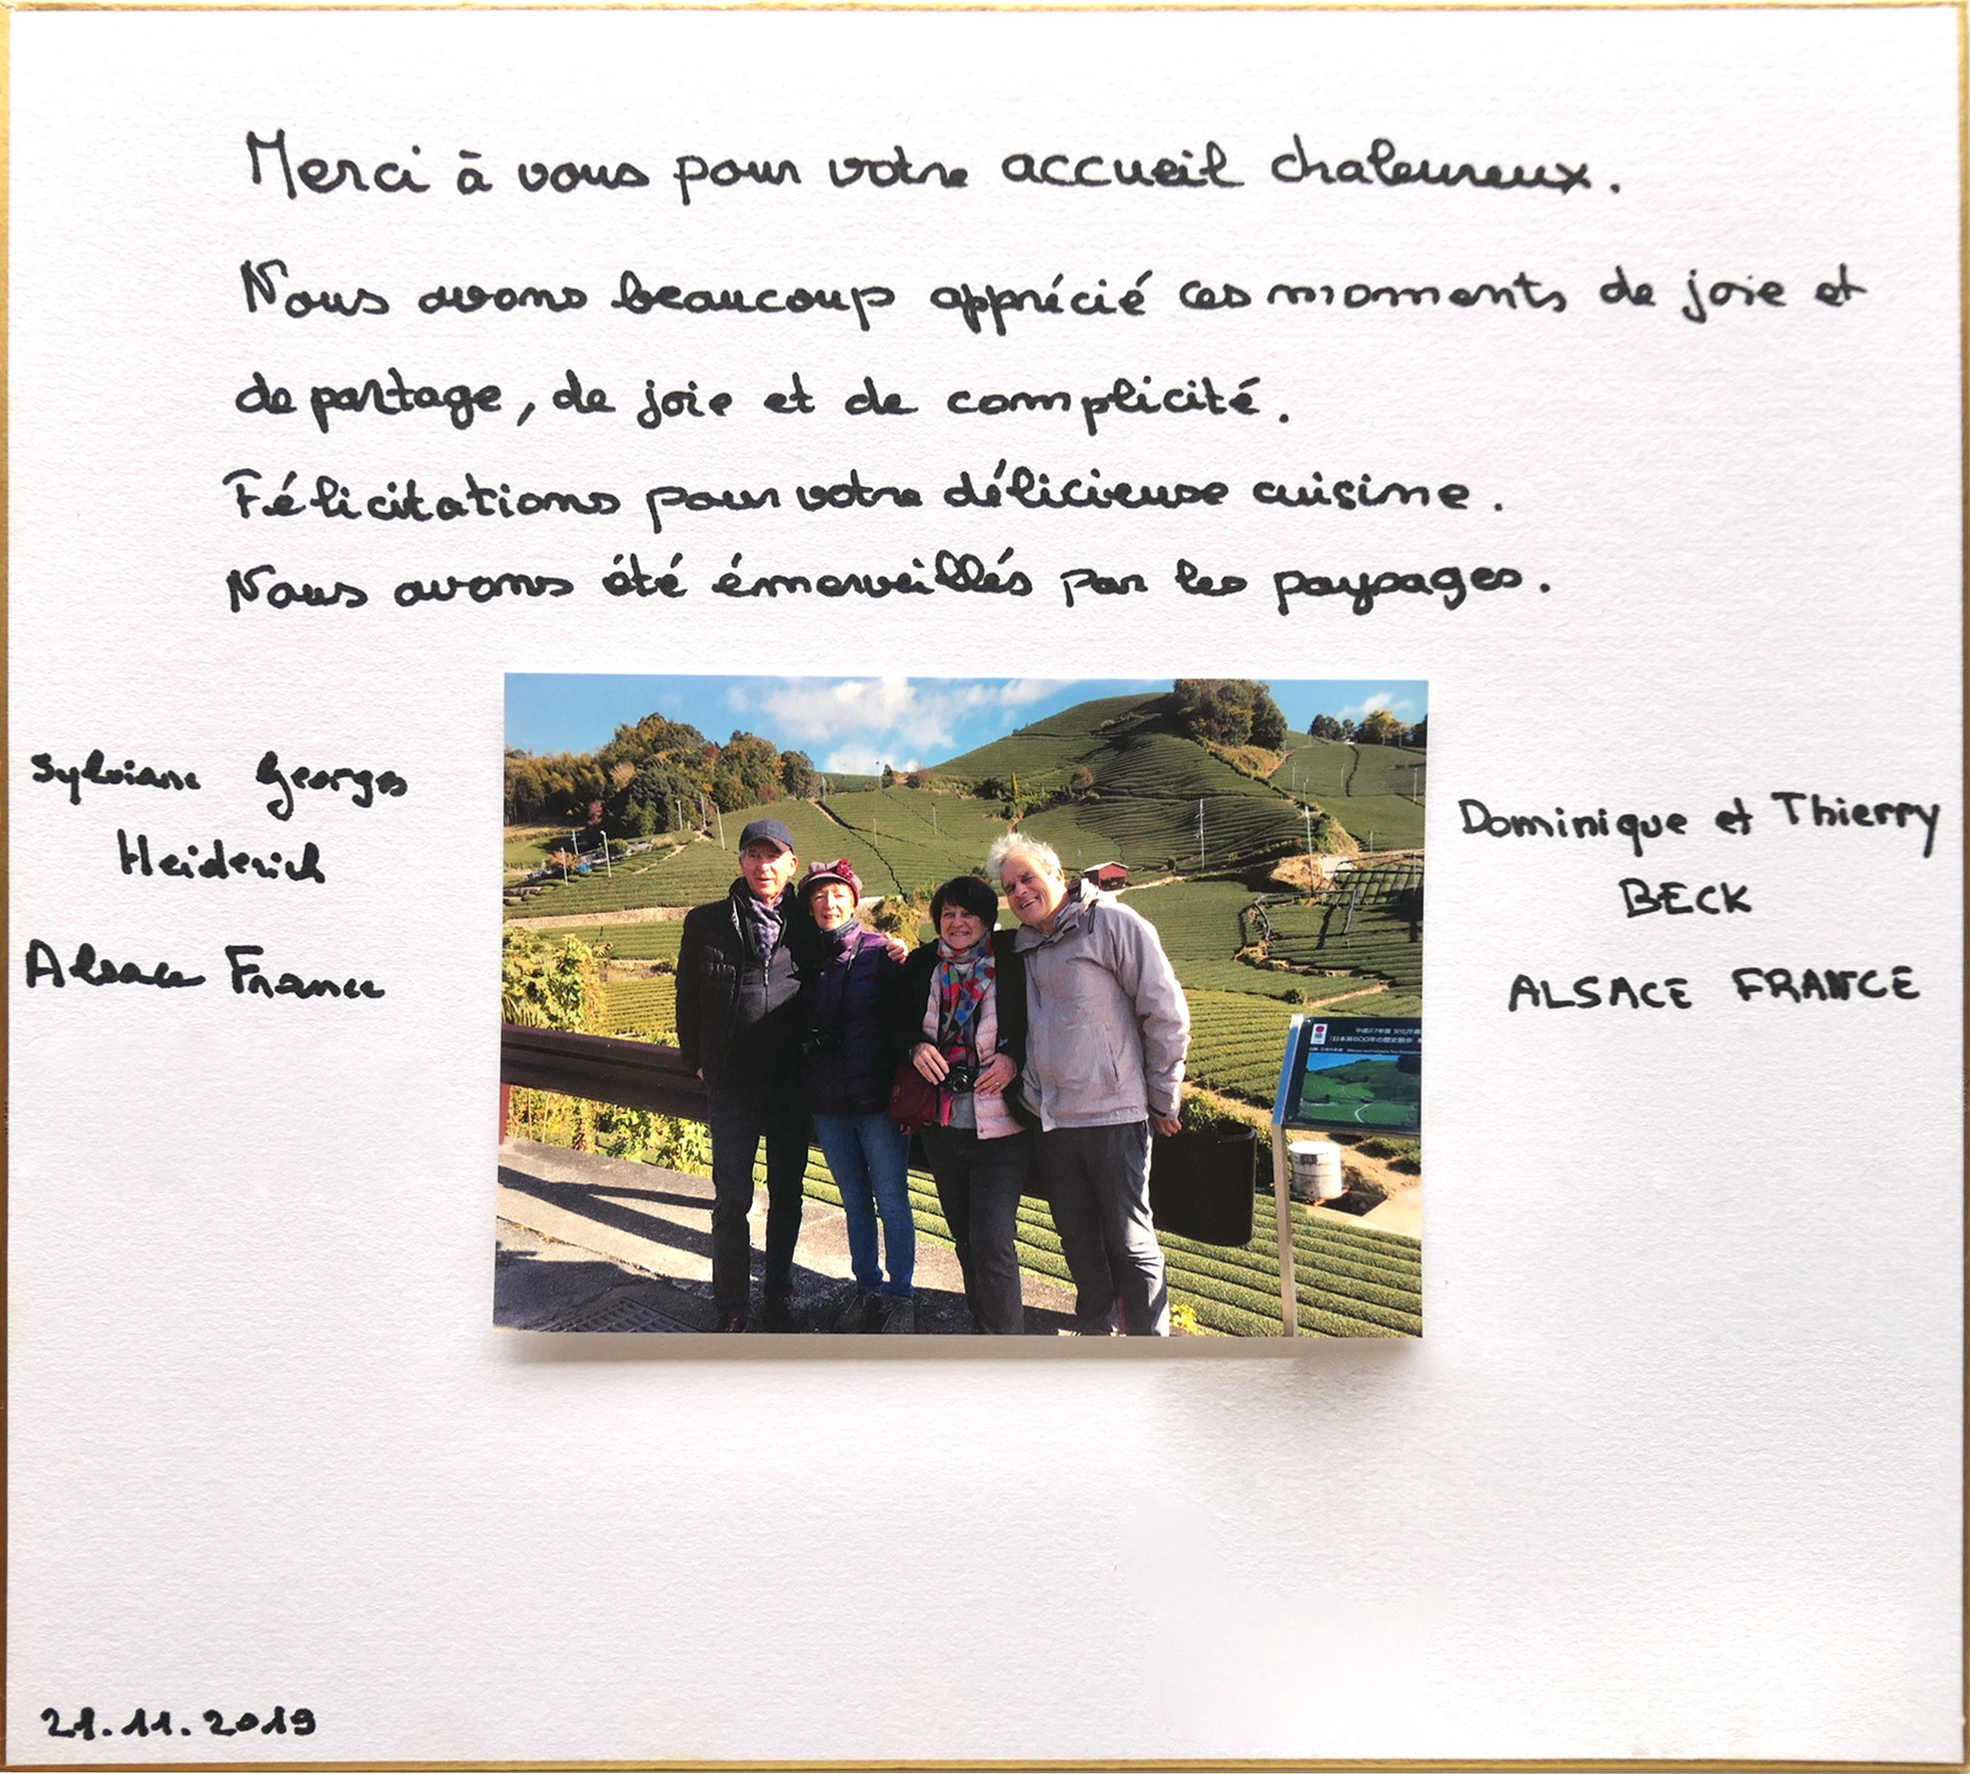 Merci à vous pour votre accueil chaleureux.
Nous avons beaucoup apprécié ces moments de joie et
de partage, de joie et de complicité.
Félicitations pour votre délicieuse cuisine.
Nous avons été émerveillés par les paysages.
Sylviane Georges
Heiderich
Alsace France
Dominique et Thierry
BECK
ALSACE FRANCE
平成27年度 文化庁
日本茶800年の歴史散歩
21.11.2019